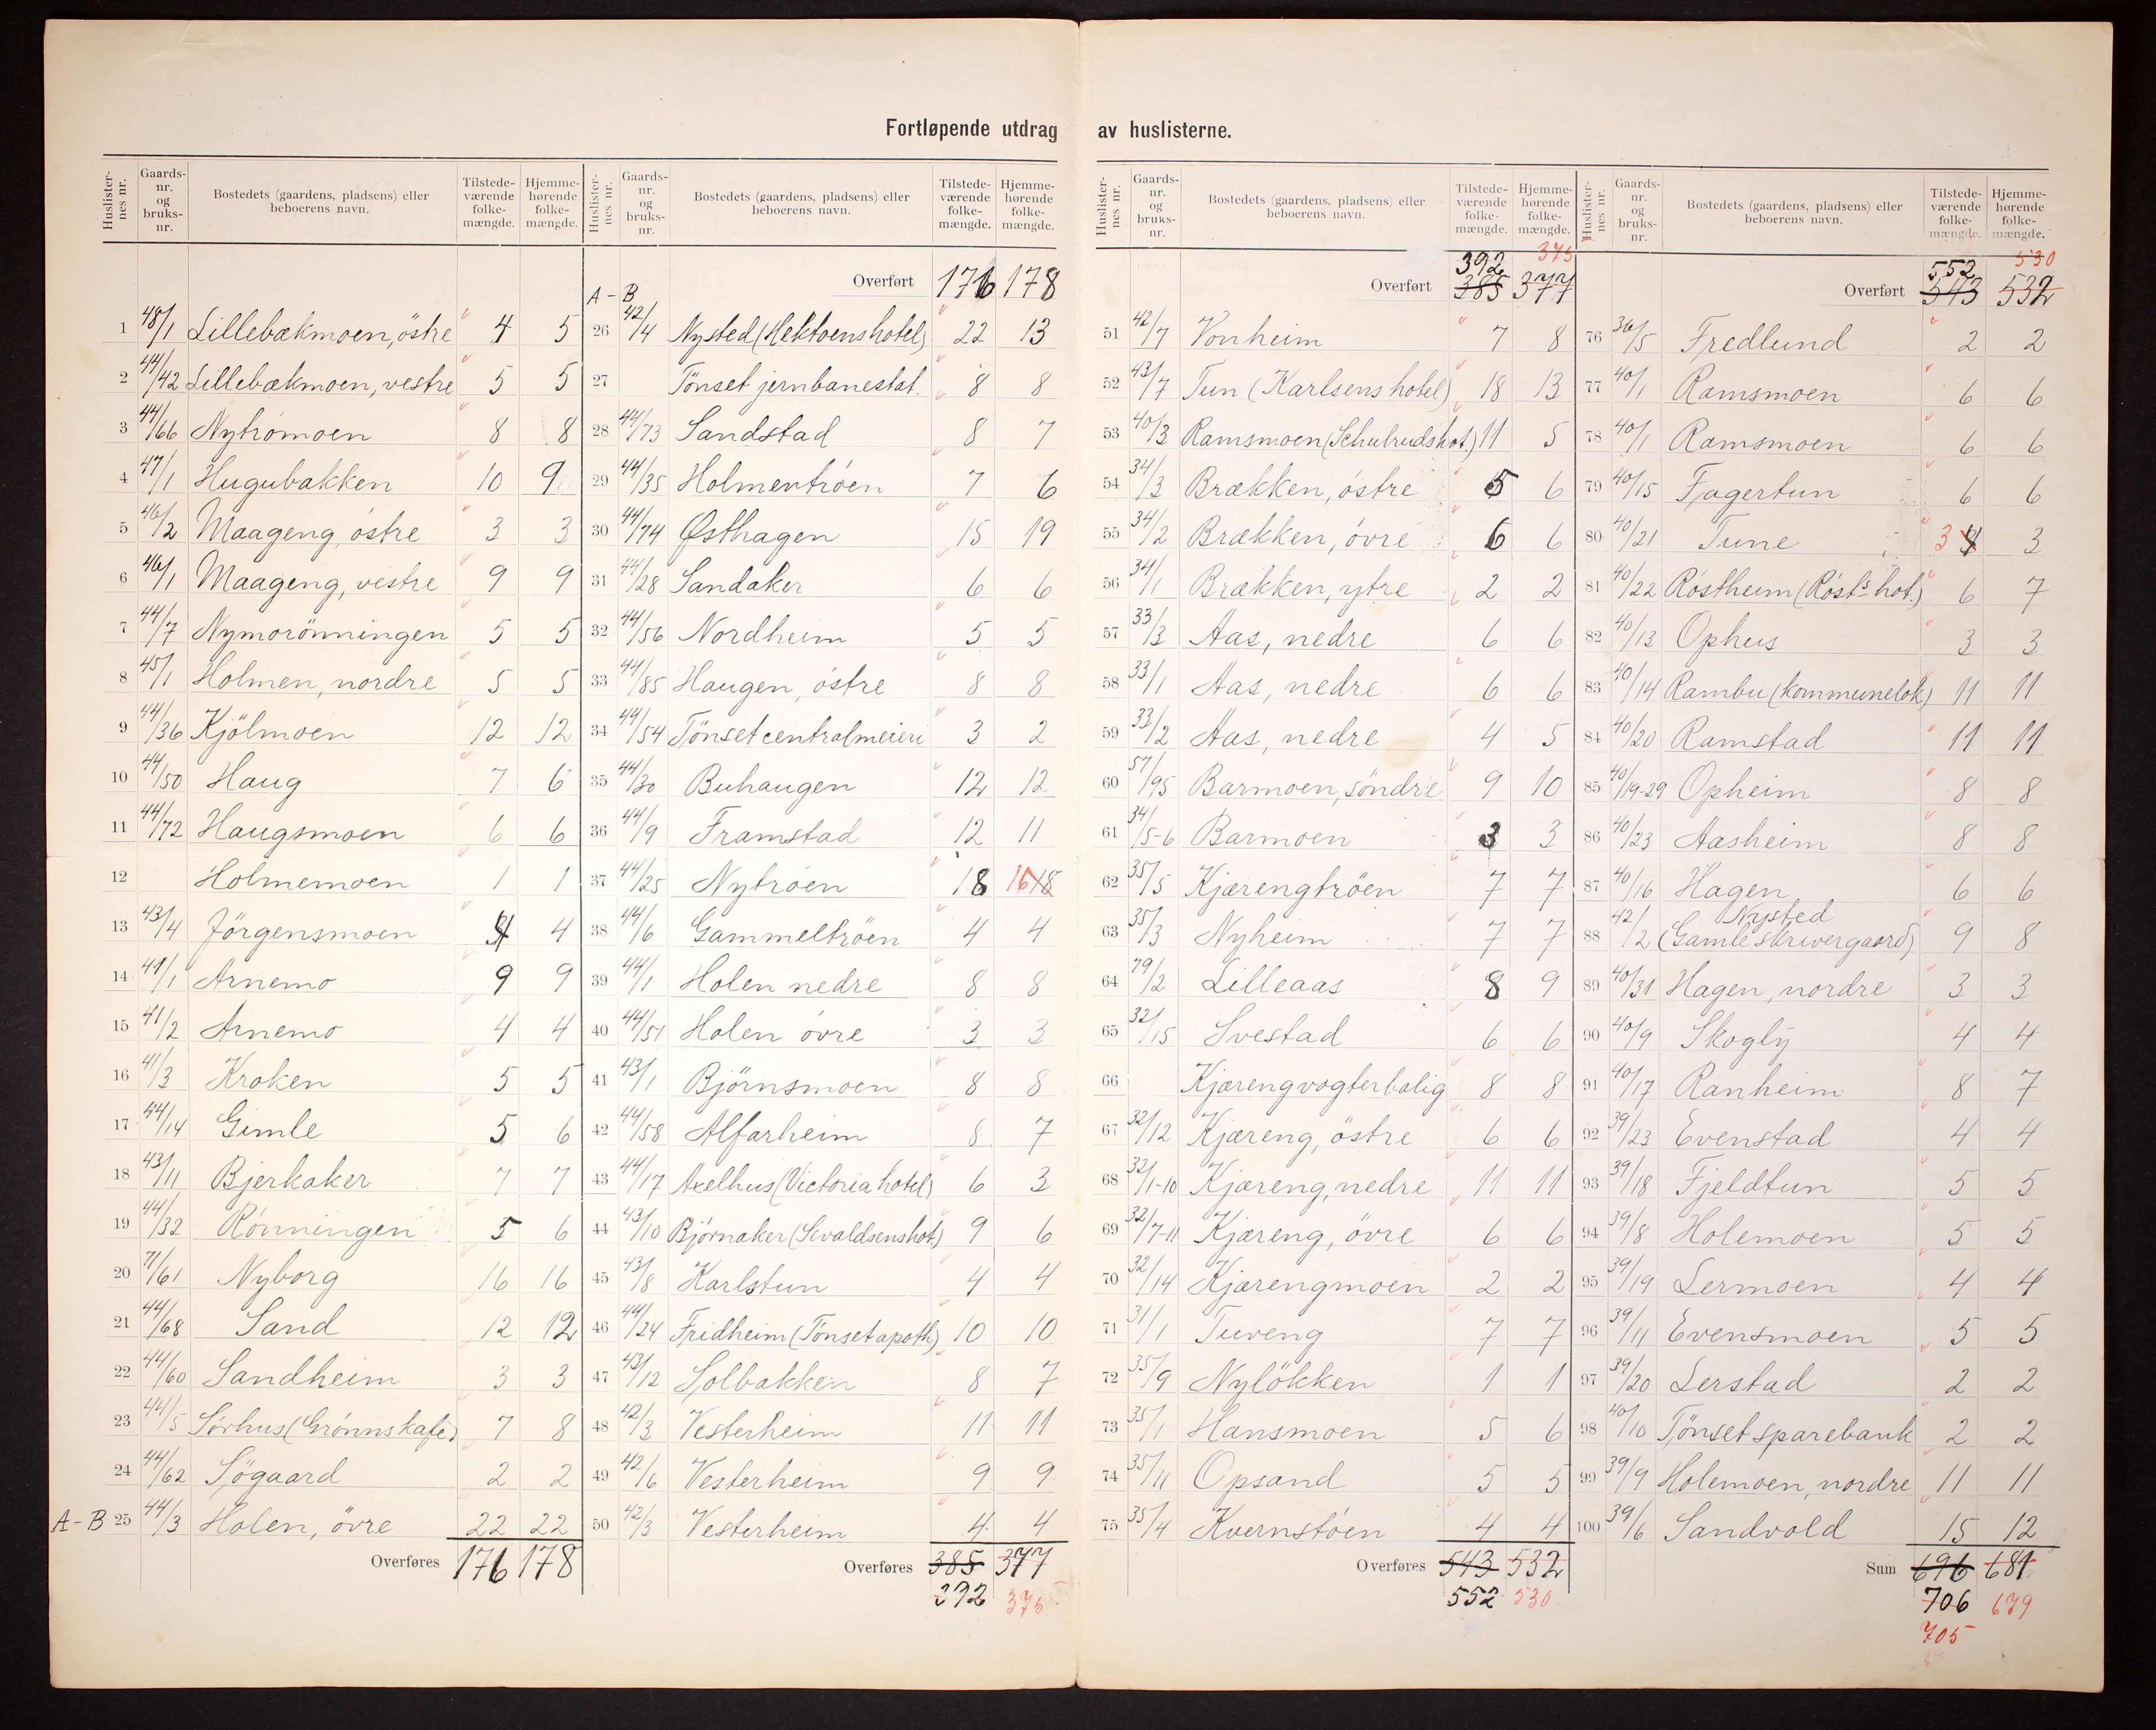 Fortløpende utdrag av huslisterne.
Huslisternes nr. Gaardsnr. og bruksnr. Bostedets (gaardens, pladsens) eller beboerens navn. Tilstedeværende folkemængde. Hjemmehørende folkemængde.
1 48/1 Lillebækmoen, östre 4 5
2 44/42 Lillebækmoen, vestre 5 5
3 44/66 Nytrömoen 8 8
4 47/1 Hugubakken 10 9
5 46/2 Maageng, östre 3 3
6 46/1 Maageng, vestre 9 9
7 44/7 Nymorönningen 5 5
8 45/1 Holmen, nordre 5 5
9 44/36 Kjölmoen 12 12
10 44/50 Haug 7 6
11 44/72 Haugsmoen 6 6
12 Holmemoen 1 1
13 43/4 Jörgensmoen 4 4
14 41/1 Arnemo 9 9
15 41/2 Arnemo 4 4
16 41/3 Kroken 5 5
17 44/14 Gimle 5 6
18 43/11 Bjerkaker 7 7
19 44/32 Rönningen 5 6
20 71/61 Nyborg 16 16
21 44/68 Sand 12 12
22 44/60 Sandheim 3 3
23 44/5 Sörhus (Grönns kafe) 7 8
24 44/62 Sögaard 2 2
A-B 25 44/3 Holen, övre 22 22
Overføres 176 178
Huslisternes nr. Gaardsnr. og bruksnr. Bostedets (gaardens, pladsens) eller beboerens navn. Tilstedeværende folkemængde. Hjemmehørende folkemængde.
Overført 176 178
A-B
26 42/4 Nysted (Hektoens hotel) 22 13
27 Tönset jernbanestat. 8 8
28 44/73 Sandstad 8 7
29 44/35 Holmentröen 7 6
30 44/74 Østhagen 15 19
31 44/28 Sandaker 6 6
32 44/56 Nordheim 5 5
33 44/85 Haugen, östre 8 8
34 44/54 Tönset centralmeieri 3 2
35 44/30 Buhaugen 12 12
36 44/9 Framstad 12 11
37 44/25 Nytröen 18 16 18
38 44/6 Gammeltröen 4 4
39 44/1 Holen nedre 8 8
40 44/51 Holen övre 3 3
41 43/1 Björnsmoen 8 8
42 44/58 Alfarheim 8 7
43 44/17 Axelhus (Victoria hotel) 6 3
44 43/10 Björnaker (Sevaldsens hot.) 9 6
45 43/8 Karlstun 4 4
46 44/24 Fridheim (Tönset apoth) 10 10
47 43/12 Solbakken 8 7
48 42/3 Vesterheim 11 11
49 42/6 Vesterheim 9 9
50 42/3 Vesterheim 4 4
Overføres 385 377
392 375
Huslisternes nr. Gaardsnr. og bruksnr. Bostedets (gaardens, pladsens) eller beboerens navn. Tilstedeværende folkemængde. Hjemmehørende folkemængde.
392 375
Overført 385 377
51 42/7 Vonheim 7 8
52 43/7 Tun (Karlsens hotel) 18 13
53 40/3 Ramsmoen (Schulrudshot.) 11 5
54 34/3 Brækken, östre 5 6
55 34/2 Brækken, övre 6 6
56 34/1 Brækken, ytre 2 2
57 33/3 Aas, nedre 6 6
58 33/1 Aas, nedre 6 6
59 33/2 Aas, nedre 4 5
60 57/95 Barmoen, söndre 9 10
61 34/5-6 Barmoen 3 3
62 35/5 Kjærengtröen 7 7
63 35/3 Nyheim 7 7
64 79/2 Lilleaas 8 9
65 32/15 Svestad 6 6
66 Kjærengvogterbolig 8 8
67 32/12 Kjæreng, östre 6 6
68 32/1-10 Kjæreng, nedre 11 11
69 32/7-11 Kjæreng, övre 6 6
70 32/14 Kjærengmoen 2 2
71 31/1 Tuveng 7 7
72 35/9 Nylökken 1 1
73 35/1 Hansmoen 5 6
74 35/11 Opsand 5 5
75 35/4 Kvernstöen 4 4
Overføres 543 532
552 530
Huslisternes nr. Gaardsnr. og bruksnr. Bostedets (gaardens, pladsens) eller beboerens navn. Tilstedeværende folkemængde. Hjemmehørende folkemængde.
552 530
Overført 543 532
76 36/5 Fredlund 2 2
77 40/1 Ramsmoen 6 6
78 40/1 Ramsmoen 6 6
79 40/15 Fagertun 6 6
80 40/21 Tune 3 4 3
81 40/22 Röstheim (Röst's hot.) 6 7
82 40/13 Ophus 3 3
83 40/14 Rambu (kommunelok) 11 11
84 40/20 Ramstad 11 11
85 40/19-29 Opheim 8 8
86 40/23 Aasheim 8 8
87 40/16 Hagen 6 6
Nysted
88 42/2 (Gamle skrivergaard) 9 8
89 40/31 Hagen, nordre 3 3
90 40/9 Skogly 4 4
91 40/17 Ranheim 8 7
92 39/23 Evenstad 4 4
93 39/18 Fjeldtun 5 5
94 39/8 Holemoen 5 5
95 39/19 Lermoen 4 4
96 39/11 Evensmoen 5 5
97 39/20 Lerstad 2 2
98 40/10 Tönset sparebank 2 2
99 39/9 Holemoen, nordre 11 11
100 39/6 Sandvold 15 12
Sum 696 681
706 679
705